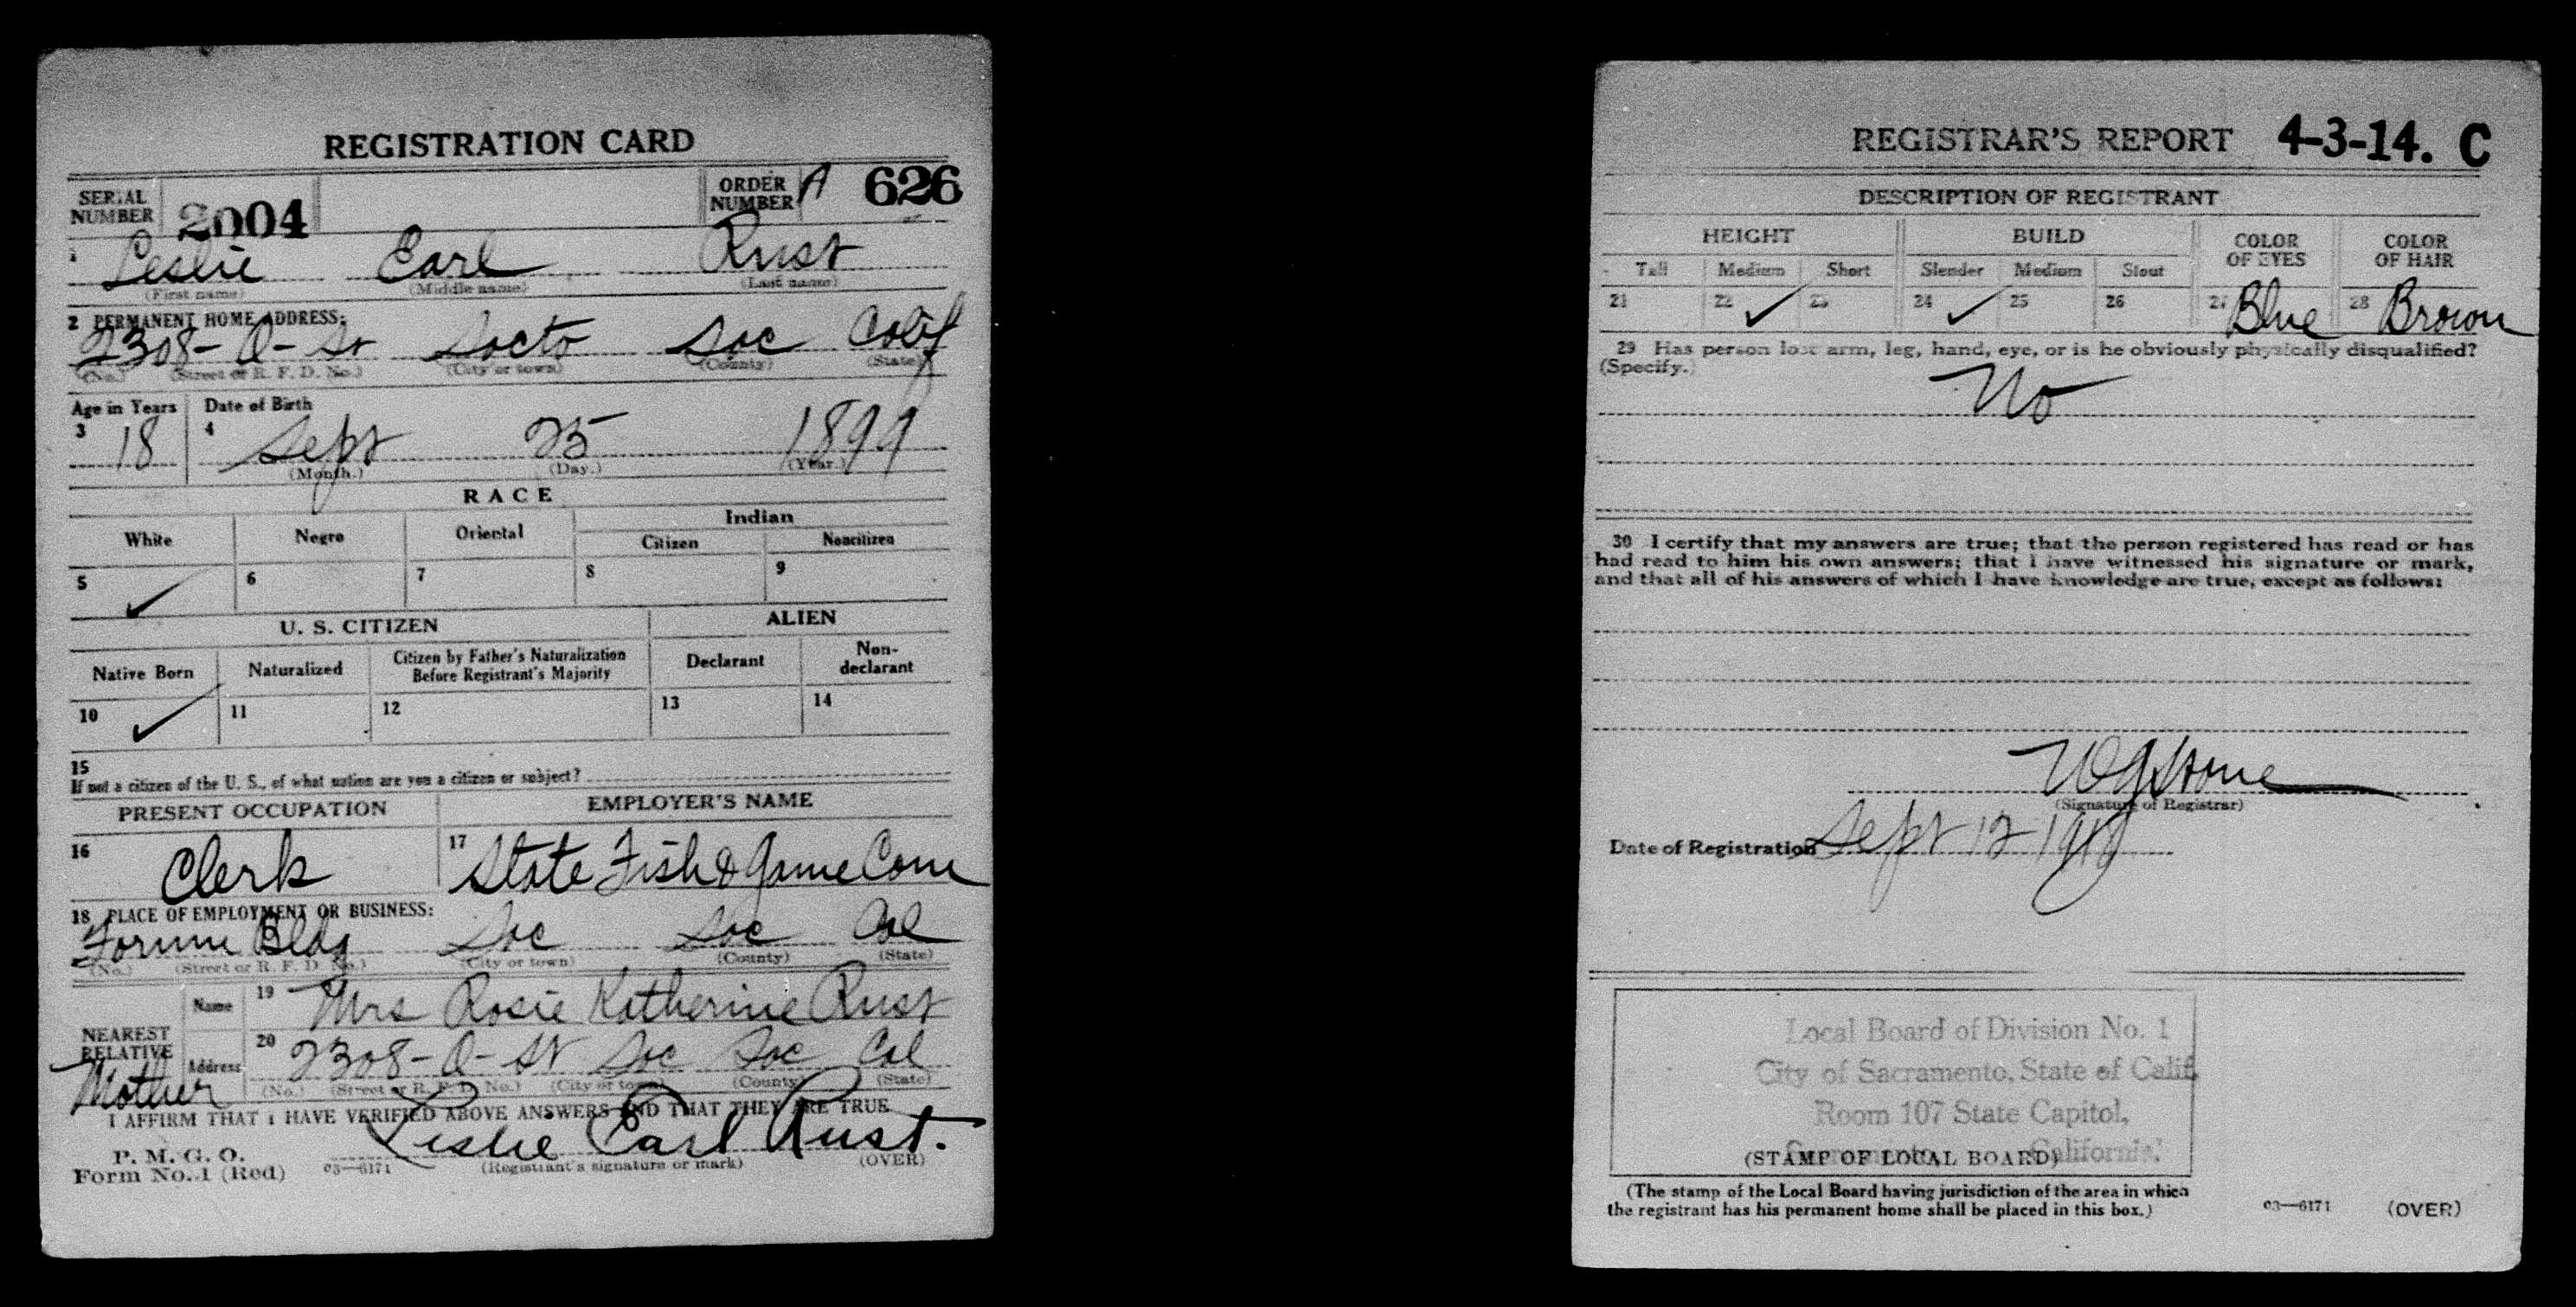 REGISTRATION CARD
SERIAL NUMBER 2004 ORDER NUMBER A 626
1 Leslie Earl Rust
(First name) (Middle name) (Last name)
2 PERMANENT HOME ADDRESS:
2308- Q- St Sacto Sac Calif
(No.) (Street or R. F. D. No.) (City or town) (County) (State)
Age in Years Date of Birth
3 18 4 Sept 25 1899
(Month.) (Day.) (Year.)
RACE
White Negro Oriental Indian
Citizen Noncitizen
5 ✓ 6 7 8 9
U. S. CITIZEN ALIEN
Native Born Naturalized Citizen by Father's Naturalization Before Registrant's Majority Declarant Non-declarant
10 ✓ 11 12 13 14
15
If not a citizen of the U. S., of what nation are you a citizen or subject?
PRESENT OCCUPATION EMPLOYER'S NAME
16 Clerk 17 State Fish & Game Com
18 PLACE OF EMPLOYMENT OR BUSINESS:
Forum Bldg Sac Sac Cal
(No.) (Street or R. F. D. No.) (City or town) (County) (State)
NEAREST RELATIVE Name 19 Mrs Rosie Katherine Rust
Mother Address 20 2308- Q- St Sac Sac Cal
(No.) (Street or R. F. D. No.) (City or town) (County) (State)
I AFFIRM THAT I HAVE VERIFIED ABOVE ANSWERS AND THAT THEY ARE TRUE
Leslie Earl Rust.
P. M. G. O.
Form No. 1 (Red) 03—6171 (Registrant's signature or mark) (OVER)
REGISTRAR'S REPORT 4-3-14. C
DESCRIPTION OF REGISTRANT
HEIGHT BUILD COLOR OF EYES COLOR OF HAIR
Tall Medium Short Slender Medium Stout
21 22 ✓ 23 24 ✓ 25 26 27 Blue 28 Brown
29 Has person lost arm, leg, hand, eye, or is he obviously physically disqualified?
(Specify.)
No
30 I certify that my answers are true; that the person registered has read or has
had read to him his own answers; that I have witnessed his signature or mark,
and that all of his answers of which I have knowledge are true, except as follows:
(Signature of Registrar)
Date of Registration Sept 12 1918
Local Board of Division No. 1
City of Sacramento, State of Calif.
Room 107 State Capitol,
Sacramento, California.
(STAMP OF LOCAL BOARD)
(The stamp of the Local Board having jurisdiction of the area in which
the registrant has his permanent home shall be placed in this box.)
03—6171 (OVER)